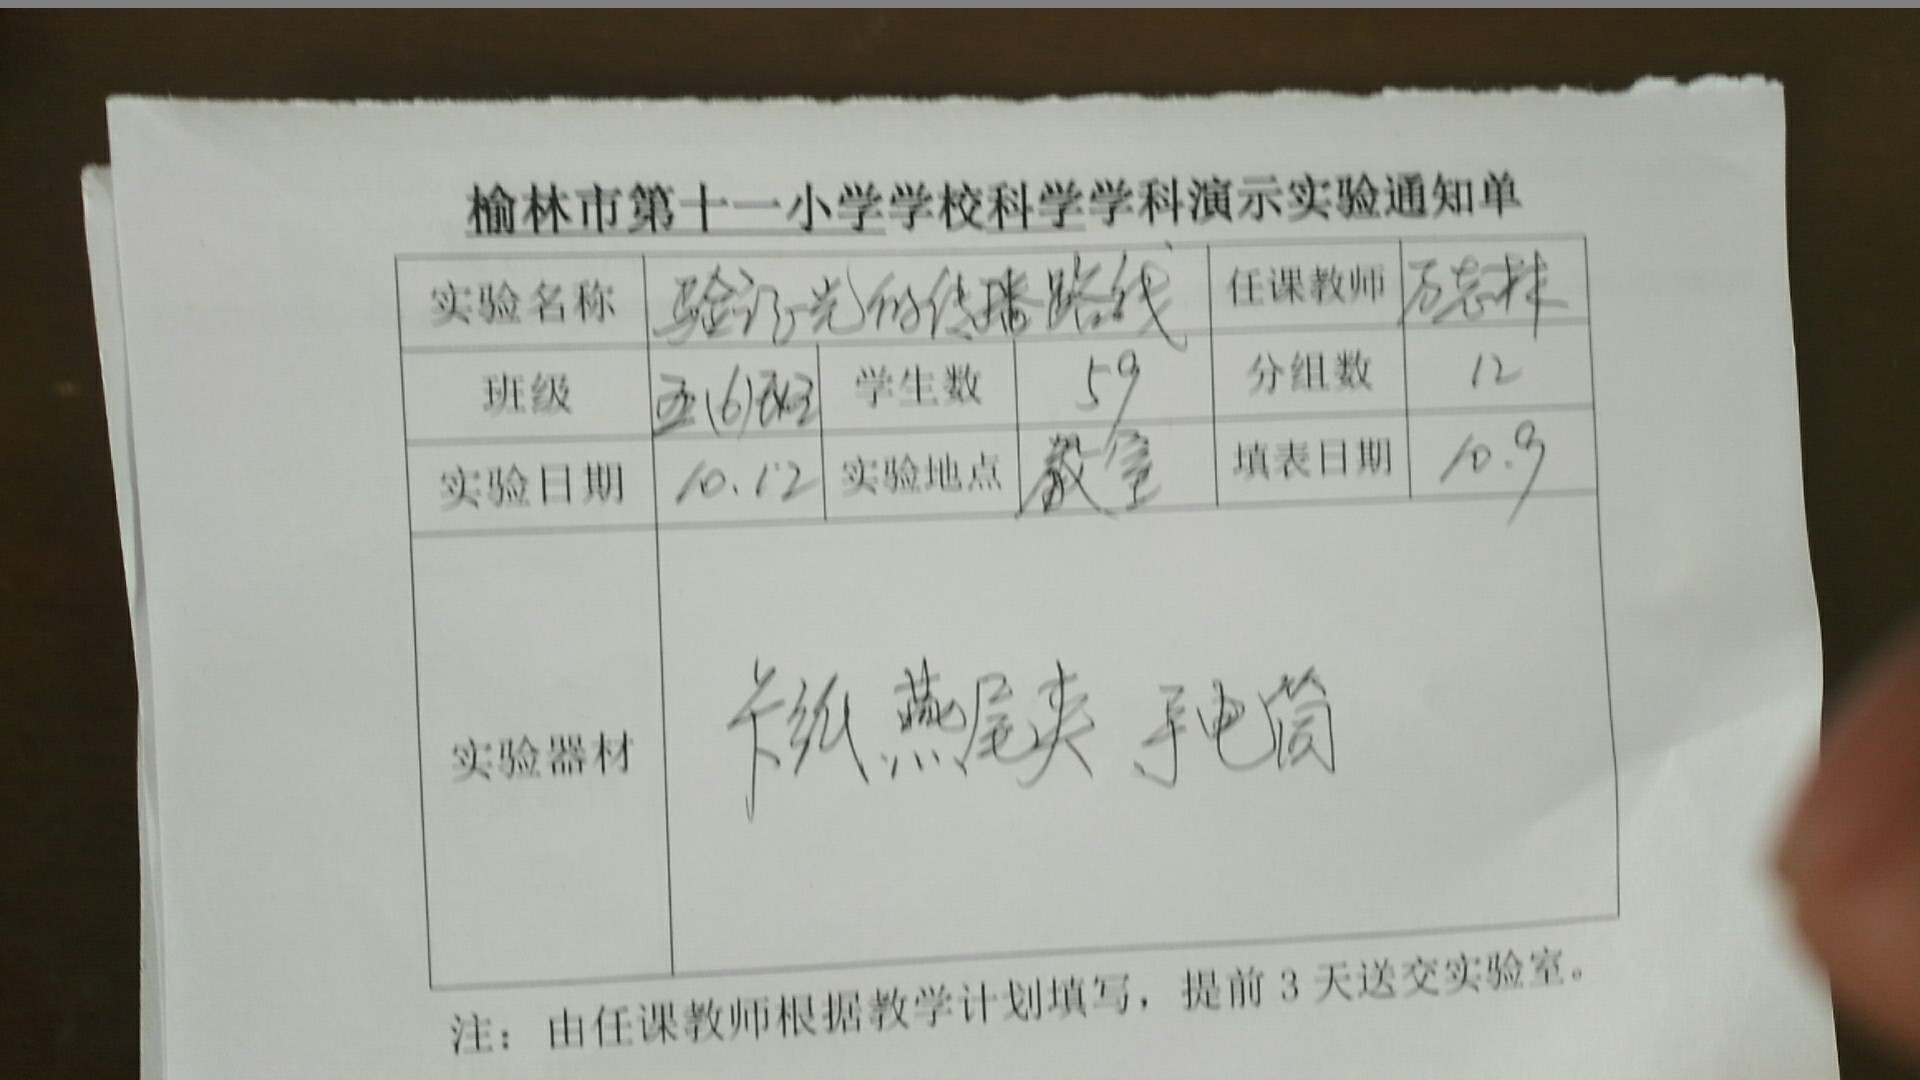 榆林市第十一小学学校科学学科演示实验通知单
实验名称 验证光的传播路线 任课教师 万志林
班级 五(6)班 学生数 59 分组数 12
实验日期 10.12 实验地点 教室 填表日期 10.9
实验器材 卡纸 燕尾夹 手电筒
注：由任课教师根据教学计划填写，提前 3 天送交实验室。